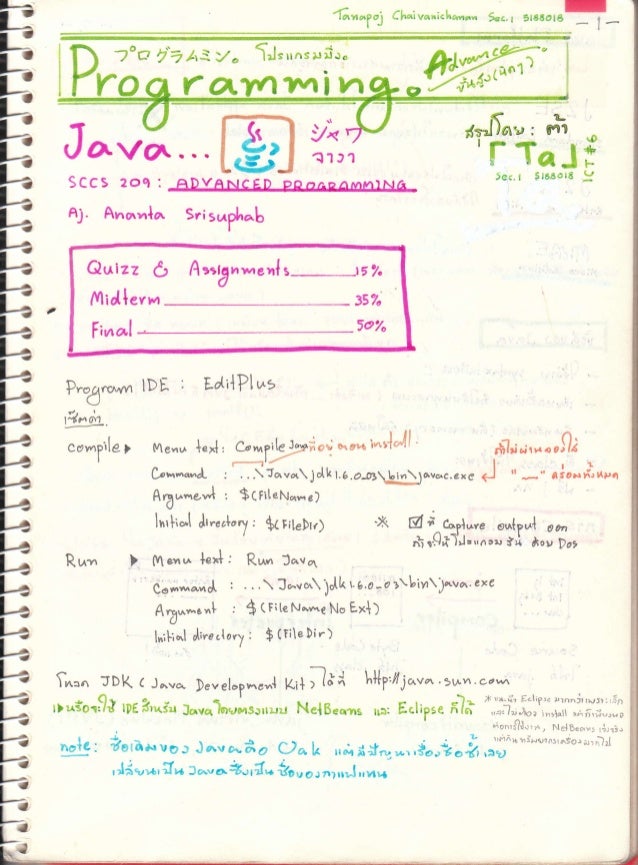 Tanapoj Chaivanichanan Sec.1 5188018 -1-
プログラムミン。 โปรแกรมมิ่ง。
Programming。 Advance ขั้นสูง(นิดๆ)
Java... ジャワ จาวา
สรุปโดย : ต้า
「Ta」 ICT#6
Sec.1 5188018
SCCS 209 : ADVANCED PROGRAMMING
Aj. Ananta Srisuphab
Quizz & Assignments 15%
Midterm 35%
Final 50%
Program IDE : EditPlus
เซ็ตค่า
compile ▶ Menu text : Compile Java ที่อยู่ตอน install!
Command : ...\Java\jdk1.6.0_03\bin\javac.exe ถ้าไม่ผ่านลองใส่ "__" คร่อมทั้งหมด
Argument : $(FileName)
Initial directory : $(FileDir) ※ ☑ ที่ capture output ออก
ถ้าจะให้โปรแกรมรัน ด้วย Dos
Run ▶ Menu text : Run Java
Command : ...\Java\jdk1.6.0_03\bin\java.exe
Argument : $(FileNameNoExt)
Initial directory : $(FileDir)
โหลด JDK (Java Development Kit) ได้ที่ http://java.sun.com
หรือจะใช้ IDE สำหรับ Java โดยตรงแบบ NetBeans และ Eclipse ก็ได้
*แนะนำ Eclipse มากกว่าเพราะเล็ก
และไม่ต้อง install แค่ก็เพียงพอ
ต่อการใช้งาน, NetBeans เจ๋งจริง
แต่กินทรัพยากรเครื่องมากไป
note : ชื่อเดิมของ Java คือ Oak แต่มีปัญหาเรื่องชื่อซ้ำเลย
เปลี่ยนเป็น Java ซึ่งเป็นชื่อของกาแฟแทน